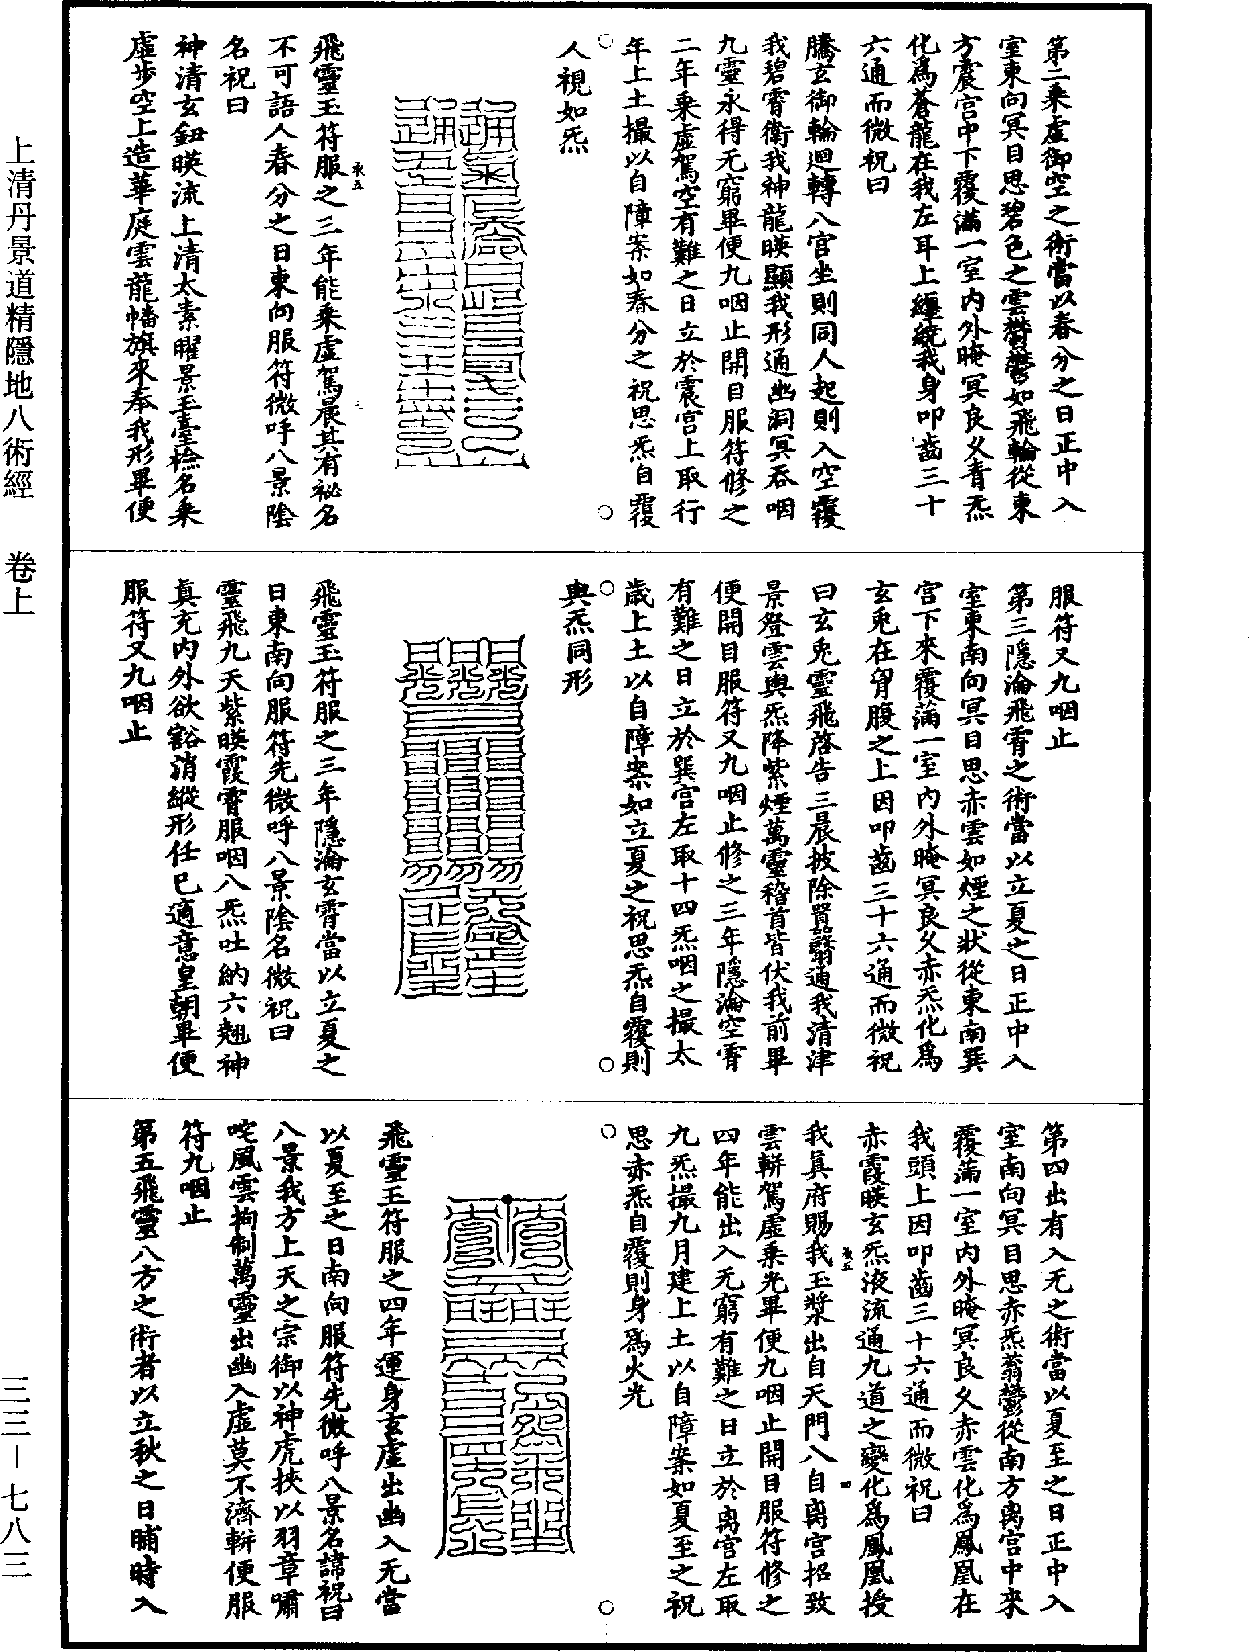 上清丹景道精隱地八術經 卷上
三三—七八三
第二乘虛御空之術當以春分之日正中入
室東向冥目思碧色之雲鬱鬱如飛輪從東
方震宮中下覆滿一室內外晻冥良久青炁
化爲蒼龍在我左耳上纏繞我身叩齒三十
六通而微祝曰
騰玄御輪迴轉八宮坐則同人起則入空覆
我碧霄衛我神龍暎顯我形通幽洞冥吞咽
九靈永得无窮畢便九咽止開目服符修之
二年乘虛駕空有難之日立於震宮上取行
年上土撮以自障案如春分之祝思炁自覆
人視如炁
飛靈玉符服之三年能乘虛駕晨其有祕名
不可語人春分之日東向服符微呼八景陰
名祝曰
神清玄鈕暎流上清太素曜景玉臺檢名乘
虛步空上造華庭雲龍幡旗來奉我形畢便
服符又九咽止
第三隱淪飛霄之術當以立夏之日正中入
室東南向冥目思赤雲如煙之狀從東南巽
宮下來覆滿一室內外晻冥良久赤炁化爲
玄兎在胷腹之上因叩齒三十六通而微祝
曰玄兎靈飛啓告三晨披除翳通我清津
景登雲輿炁降紫煙萬靈稽首皆伏我前畢
便開目服符又九咽止修之三年隱淪空霄
有難之日立於巽宮左取十四炁咽之撮太
歲上土以自障案如立夏之祝思炁自覆則
與炁同形
飛靈玉符服之三年隱淪玄霄當以立夏之
日東南向服符先微呼八景陰名微祝曰
靈飛九天紫暎霞霄服咽八炁吐納六翹神
真充內外欲豁消縱形任已適意皇朝畢便
服符又九咽止
第四出有入无之術當以夏至之日正中入
室南向冥目思赤炁蓊鬱從南方离宮中來
覆滿一室內外晻冥良久赤雲化爲鳳凰在
我頭上因叩齒三十六通而微祝曰
赤霞暎玄炁液流通九道之變化爲鳳凰授
我眞府賜我玉漿出自天門入自离宮招致
雲軿駕虛乘光畢便九咽止開目服符修之
四年能出入无窮有難之日立於离宮左取
九炁撮九月建上土以自障案如夏至之祝
思赤炁自覆則身爲火光
飛靈玉符服之四年運身玄虛出幽入无當
以夏至之日南向服符先微呼八景名諱祝曰
八景我方上天之宗御以神虎挾以羽章嘯
咤風雲拘制萬靈出幽入虛莫不濟軿便服
符九咽止
第五飛靈八方之術者以立秋之日晡時入